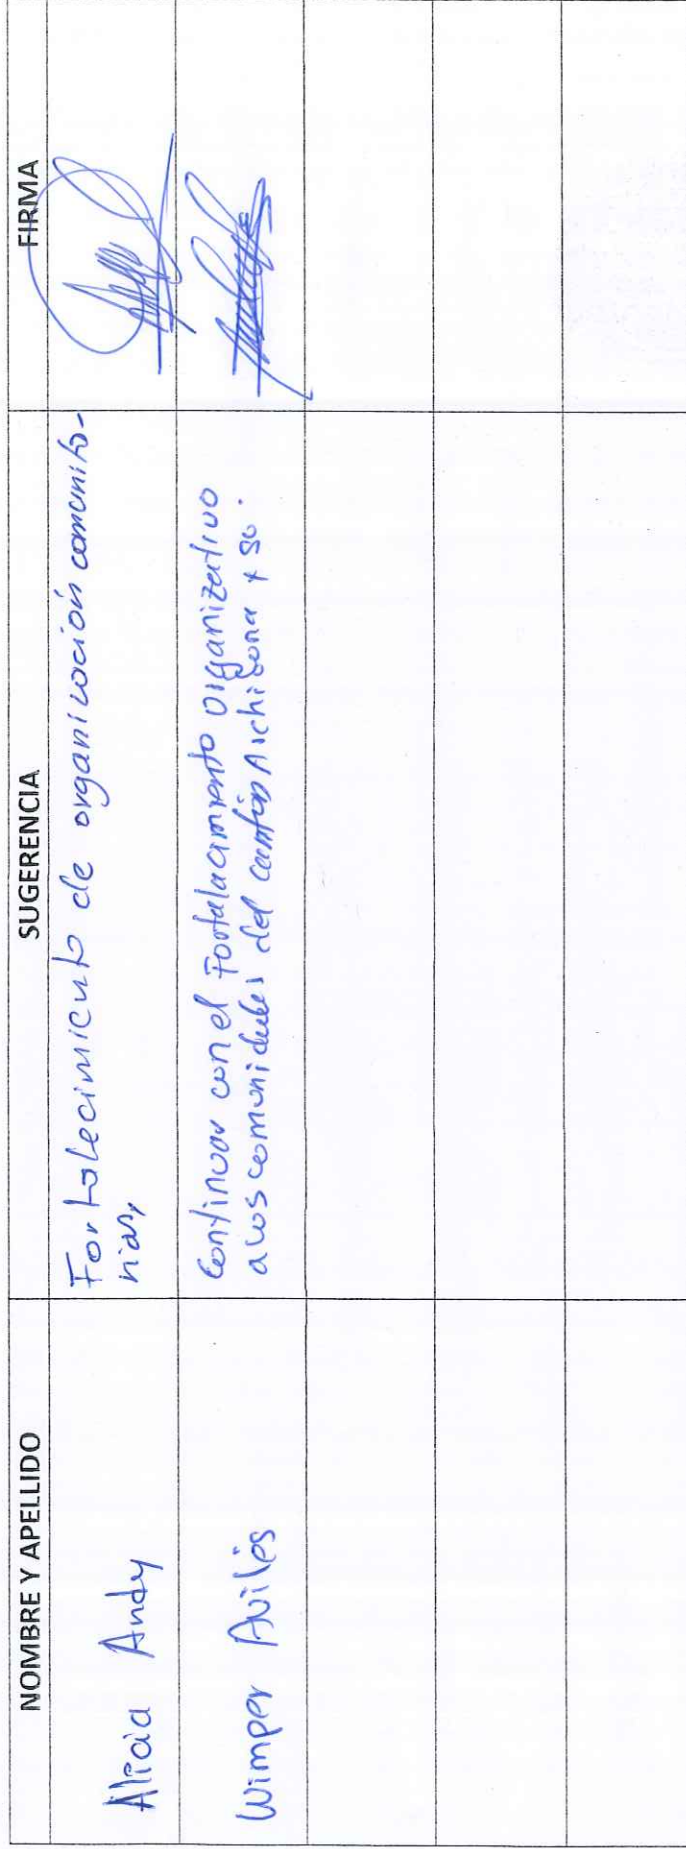 NOMBRE Y APELLIDO SUGERENCIA FIRMA
Alicia Andy
Fortalecimiento de organización comunita-
rias,
Wimper Avilés
Continuar con el Fortalecimiento organizativo
a las comunidades del cantón Archidona